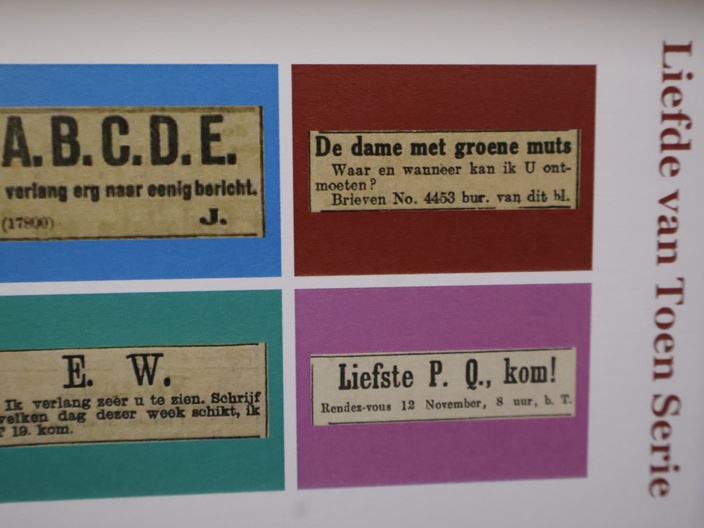 A.B.C.D.E.
verlang erg naar eenig bericht.
(17890) J.
De dame met groene muts
Waar en wanneer kan ik U ont-
moeten?
Brieven No. 4453 bur. van dit bl.
E. W.
Ik verlang zeer u te zien. Schrijf
welken dag dezer week schikt, ik
19. kom.
Liefste P. Q., kom!
Rendez-vous 12 November, 8 uur, b. T.
Liefde van Toen Serie